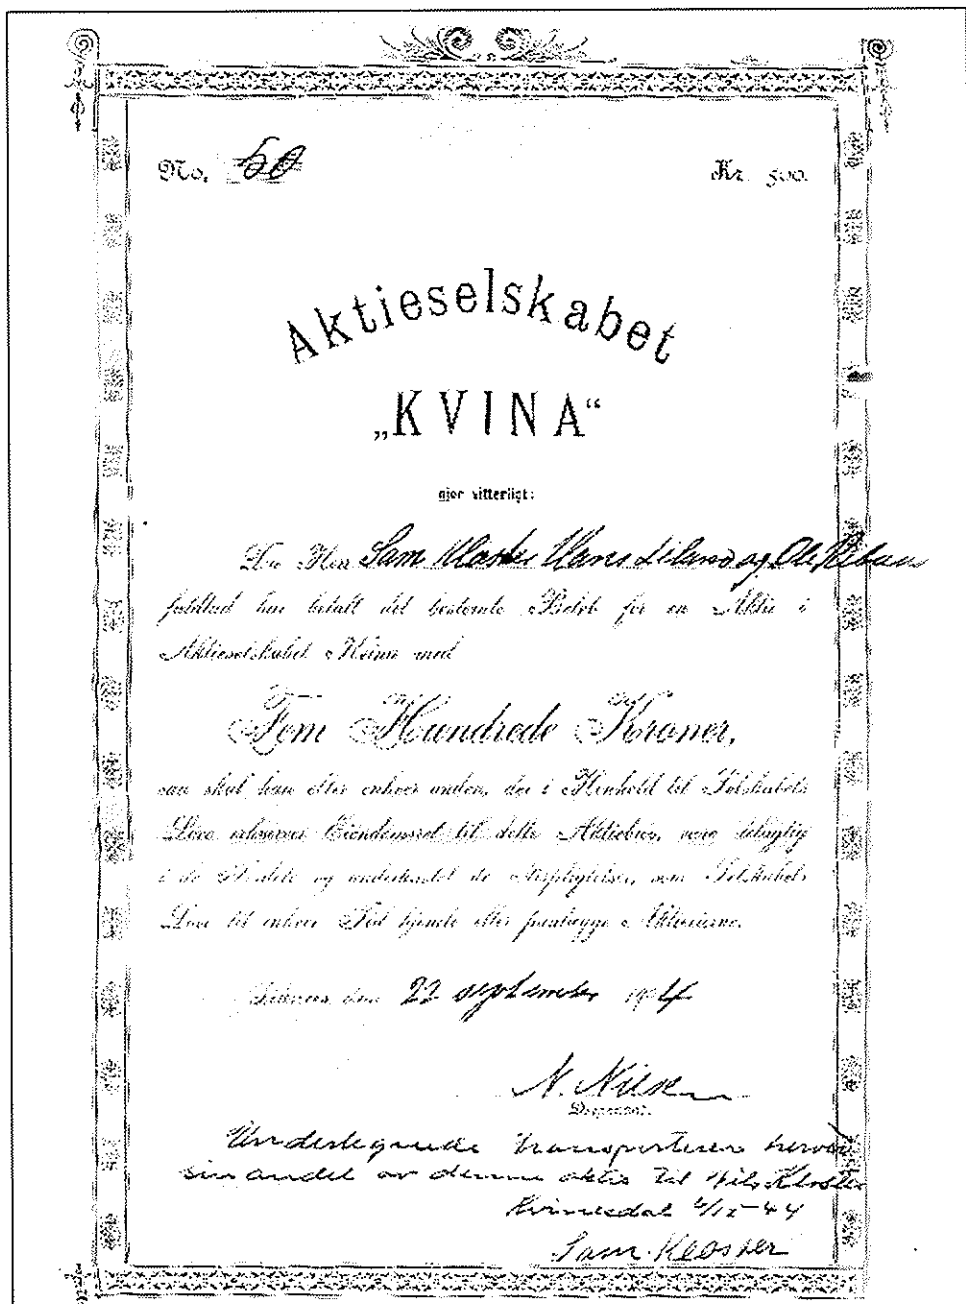 No. 50 Kr. 500.
Aktieselskabet
„KVINA“
gjør vitterligt:
Sam Kloster Hans Liland og Ole
har betalt det bestemte Beløb for en Aktie i
Aktieselskabet Kvina med
Fem Hundrede Kroner,
skal han eller enhver anden, der i Henhold til Selskabets
Love erhverver Eiendomsret til dette Aktiebrev, være delagtig
i de og underkastet de Forpligtelser, som Selskabets
Love til enhver Tid hjemle eller paalægge Aktieeierne.
den 22 september 1904
N. Nilsen
Undertegnede transporterer herved
sin andel av denne aktie til Nils Kloster
Kvinesdal -44
Sam. Kloster